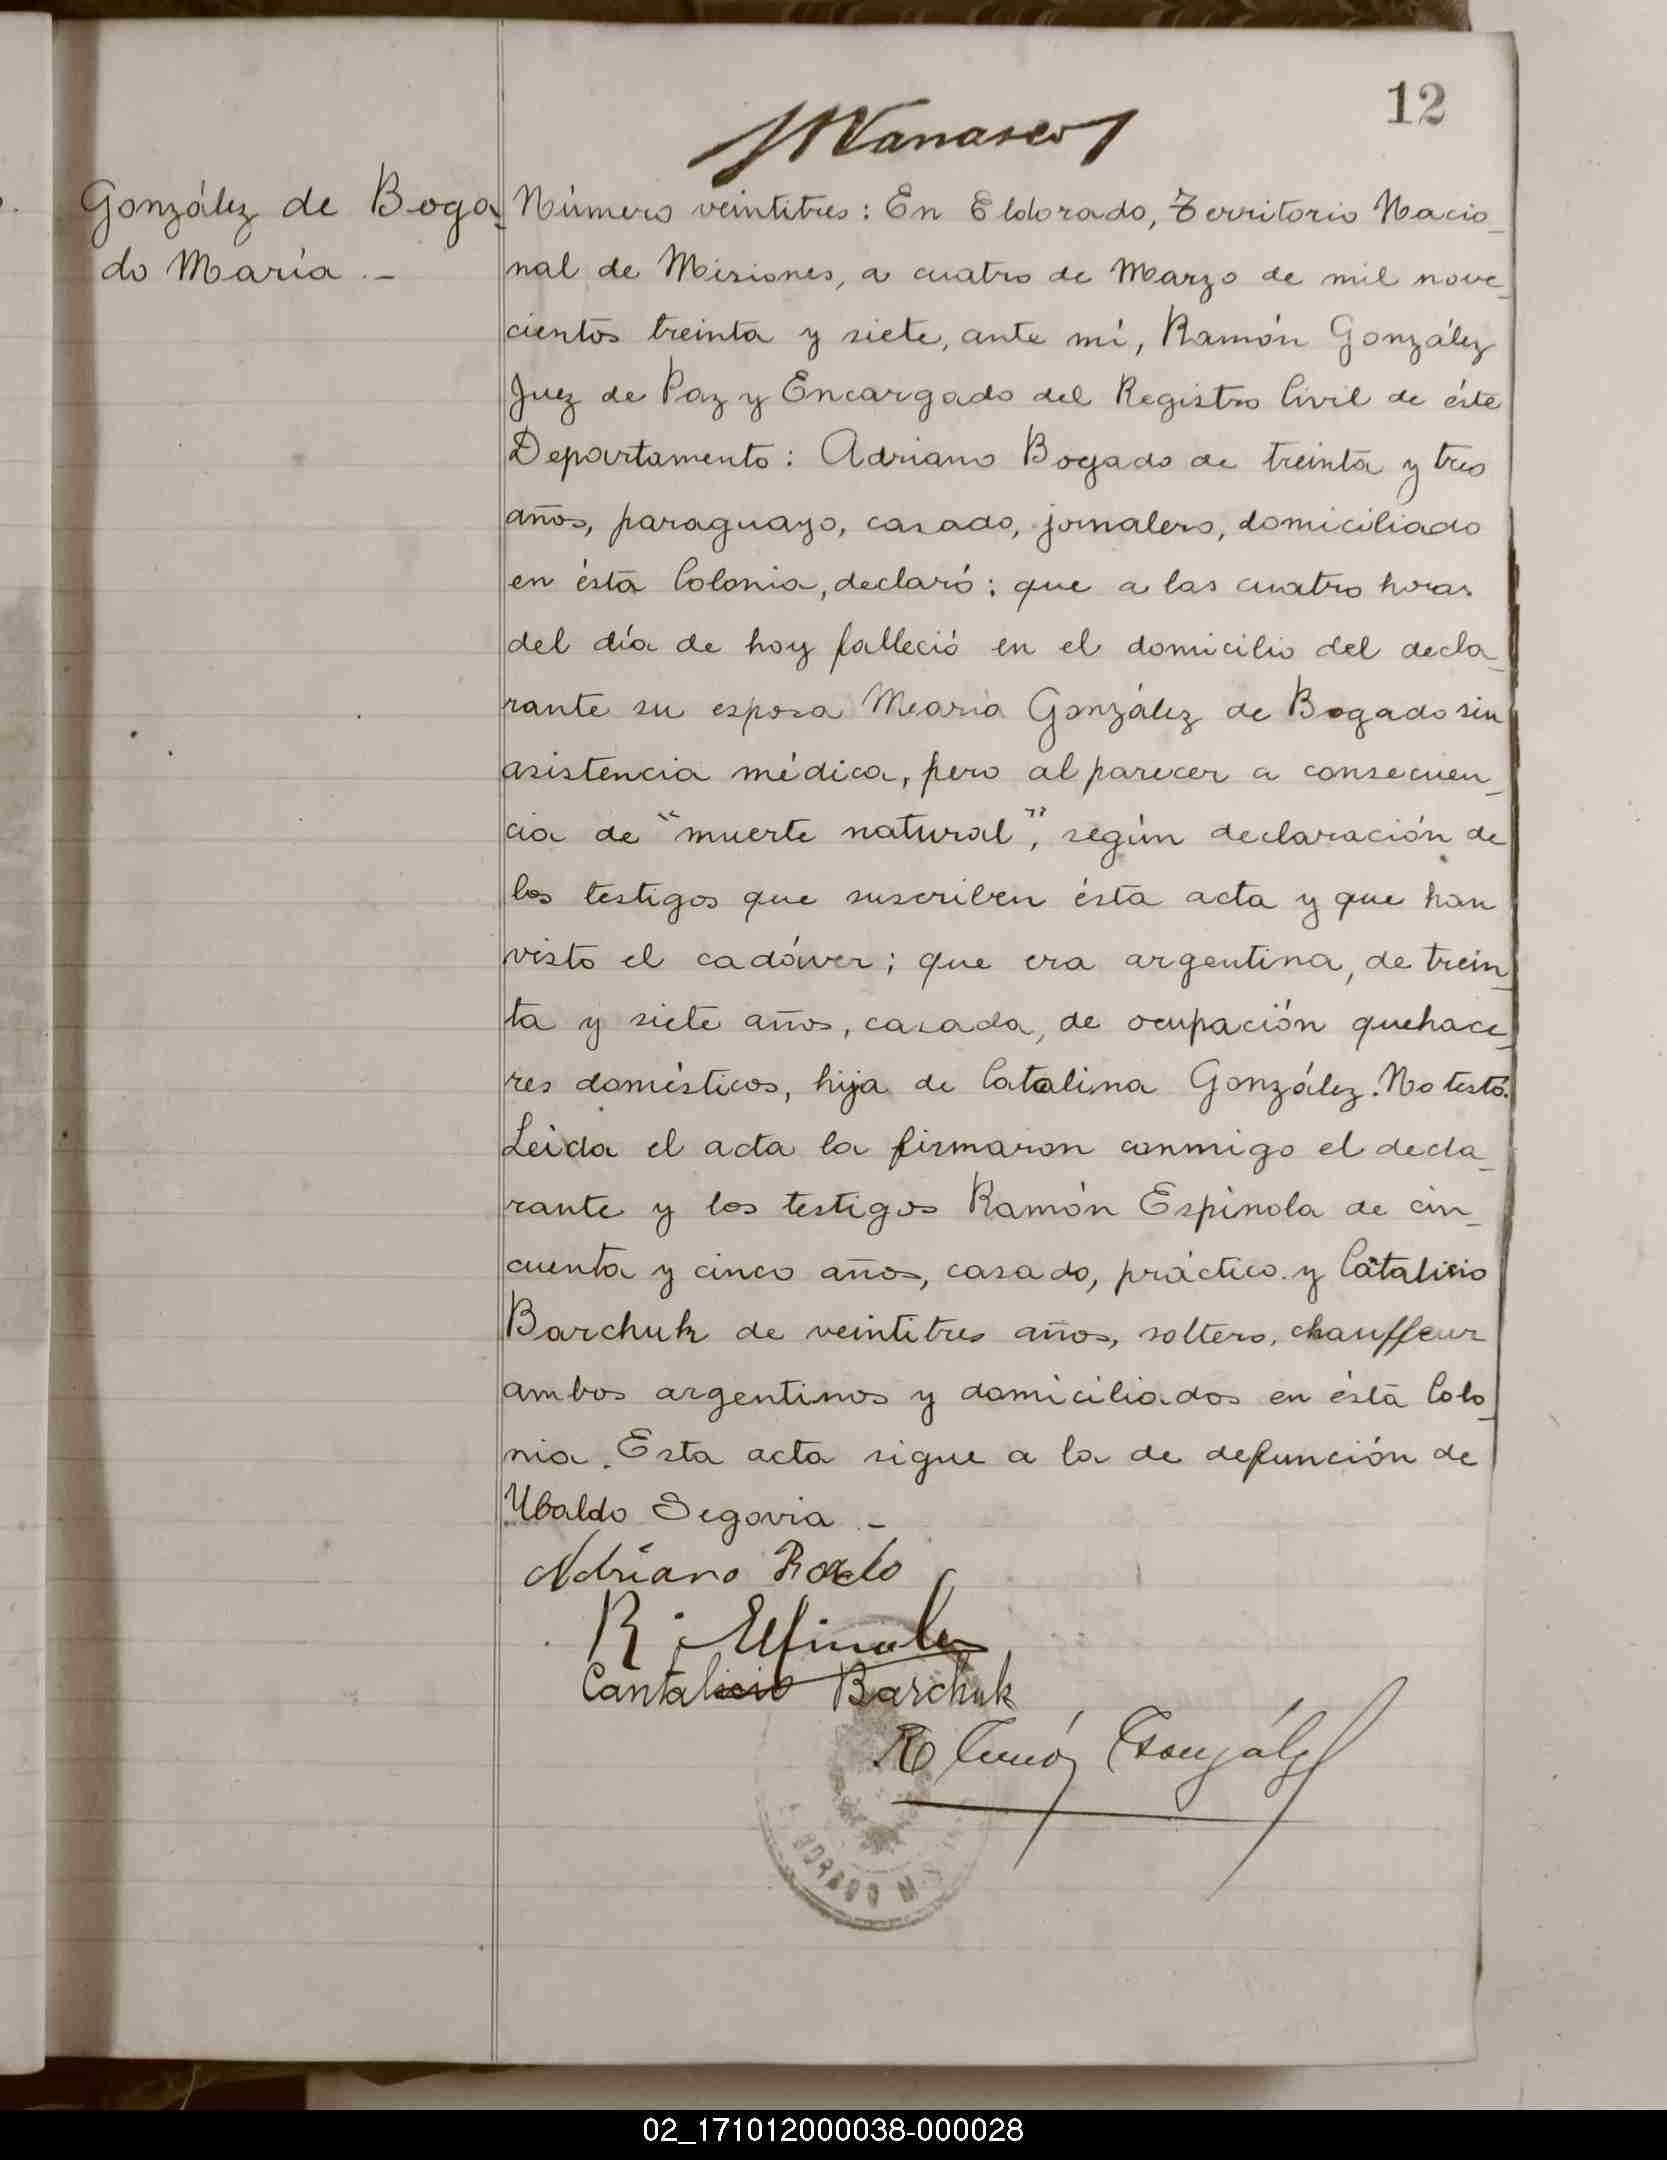 12
González de Boga_
do María._
Número veintitres: En Eldorado, Territorio Nacio_
nal de Misiones, a cuatro de Marzo de mil nove_
cientos treinta y siete, ante mí, Ramón González
Juez de Paz y Encargado del Registro Civil de éste
Departamento: Adriano Bogado de treinta y tres
años, paraguayo, casado, jornalero, domiciliado
en ésta Colonia, declaró: que a las cuatro horas
del día de hoy falleció en el domicilio del decla_
rante su esposa María González de Bogado sin
asistencia médica, pero al parecer a consecuen_
cia de "muerte natural", según declaración de
los testigos que suscriben ésta acta y que han
visto el cadáver; que era argentina, de trein_
ta y siete años, casada, de ocupación quehace_
res domésticos, hija de Catalina González. No testó.
Leida el acta la firmaron conmigo el decla_
rante y los testigos Ramón Espínola de cin_
cuenta y cinco años, casado, práctico y Catalicio
Barchuk de veintitres años, soltero, chauffeur
ambos argentinos y domiciliados en ésta Colo_
nia. Esta acta sigue a la de defunción de
Ubaldo Segovia _
Adriano
R. Espinola
Cantalicio Barchuk
Ramón González
02_171012000038-000028